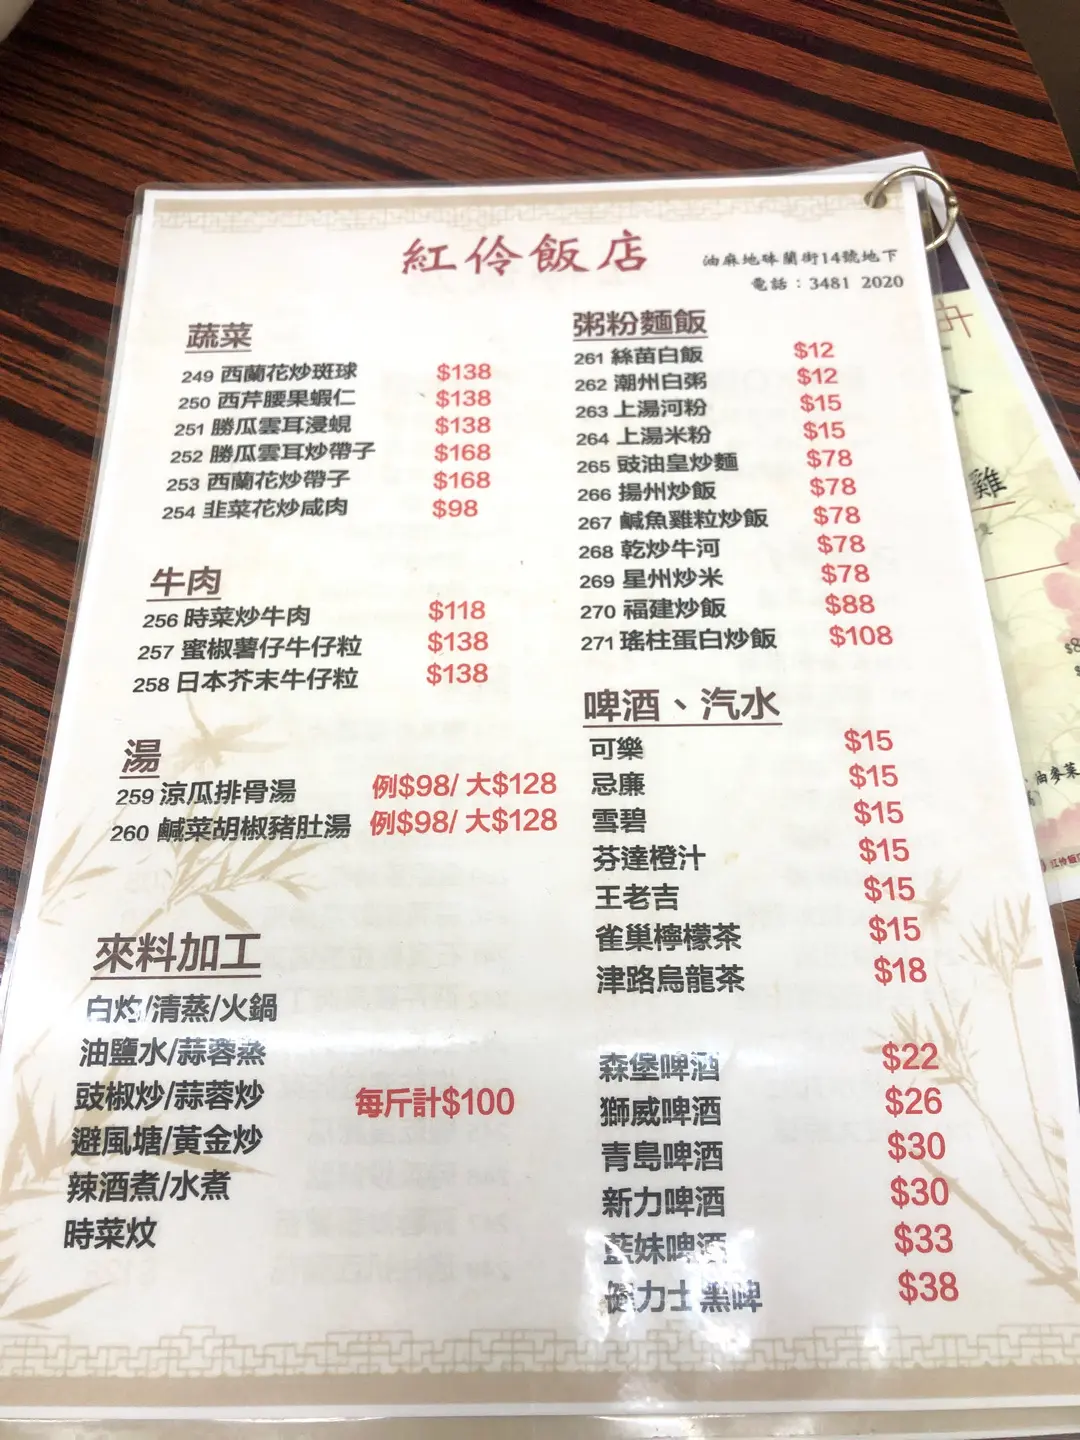 紅伶飯店
油麻地砵蘭街14號地下
電話：3481 2020
蔬菜
249 西蘭花炒斑球 $138
250 西芹腰果蝦仁 $138
251 勝瓜雲耳浸蜆 $138
252 勝瓜雲耳炒帶子 $168
253 西蘭花炒帶子 $168
254 韭菜花炒咸肉 $98
牛肉
256 時菜炒牛肉 $118
257 蜜椒薯仔牛仔粒 $138
258 日本芥末牛仔粒 $138
湯
259 涼瓜排骨湯 例$98/ 大$128
260 鹹菜胡椒豬肚湯 例$98/ 大$128
來料加工
白灼/清蒸/火鍋
油鹽水/蒜蓉蒸
豉椒炒/蒜蓉炒
每斤計$100
避風塘/黃金炒
辣酒煮/水煮
時菜炆
粥粉麵飯
261 絲苗白飯 $12
262 潮州白粥 $12
263 上湯河粉 $15
264 上湯米粉 $15
265 豉油皇炒麵 $78
266 揚州炒飯 $78
267 鹹魚雞粒炒飯 $78
268 乾炒牛河 $78
269 星州炒米 $78
270 福建炒飯 $88
271 瑤柱蛋白炒飯 $108
啤酒、汽水
可樂 $15
忌廉 $15
雪碧 $15
芬達橙汁 $15
王老吉 $15
雀巢檸檬茶 $15
津路烏龍茶 $18
森堡啤酒 $22
獅威啤酒 $26
青島啤酒 $30
新力啤酒 $30
藍妹啤酒 $33
健力士黑啤 $38
雞
油麥菜
紅伶飯